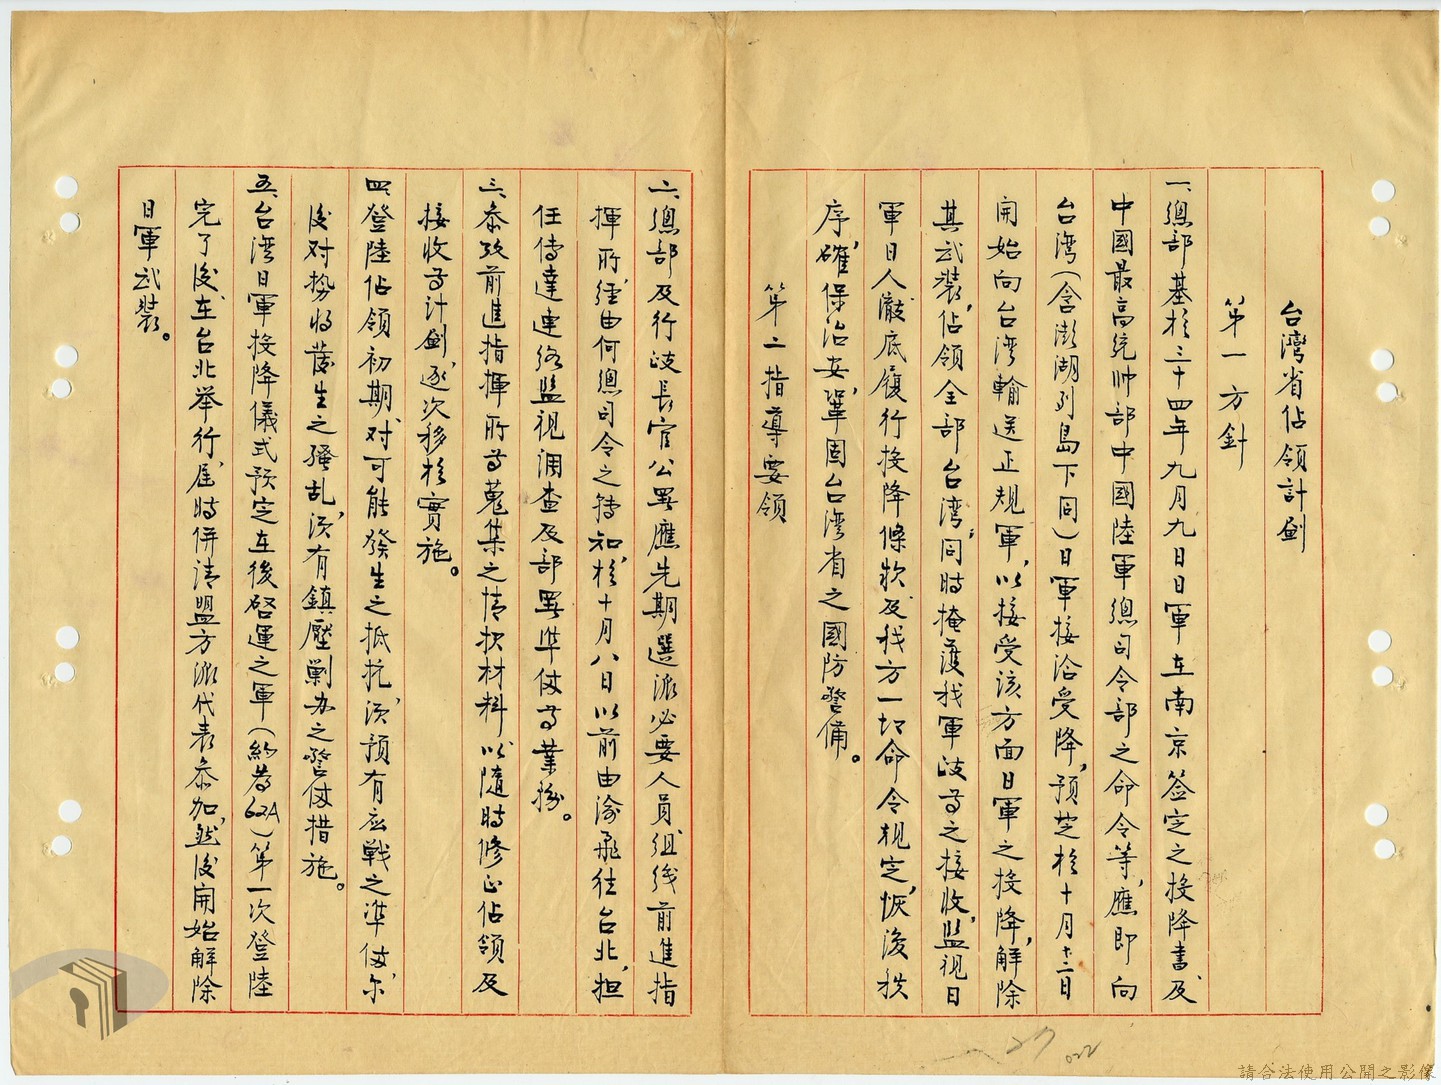 台湾省佔領計劃
第一 方針
一、總部基於三十四年九月九日日軍在南京签定之投降書、及
中國最高统帅部中國陸軍總司令部之命令等，應即向
台湾（含澎湖列島下同）日軍接洽受降，預芝於十月十三日
開始向台湾輸送正規軍，以接受该方面日軍之投降，解除
其武装，佔領全部台湾，同時掩護我軍政等之接收，监视日
軍日人澈底履行投降條款及我方一切命令规定，恢復秩
序，確保治安，鞏固台湾省之國防警備。
第二 指導要領
二、總部及行政長官公署應先期選派必要人員，组织前進指
揮所，經由何總司令之轉知，於十月八日以前由渝飛往台北，担
任传達連络监视调查及部署準俻等業務。
三、參攷前進指揮所等蒐集之情报材料，以隨時修正佔領及
接收等计劃，逐次移於實施。
四、登陸佔領初期，对可能發生之抵抗，须预有应戰之準俻，尔
後对势将萌生之骚乱，须有鎮壓剿办之警俻措施。
五、台湾日軍投降儀式预定在後啓運之軍（約為62A）第一次登陸
完了後，在台北举行，届時併请盟方派代表參加，然後開始解除
日軍武装。
022
請合法使用公開之影像